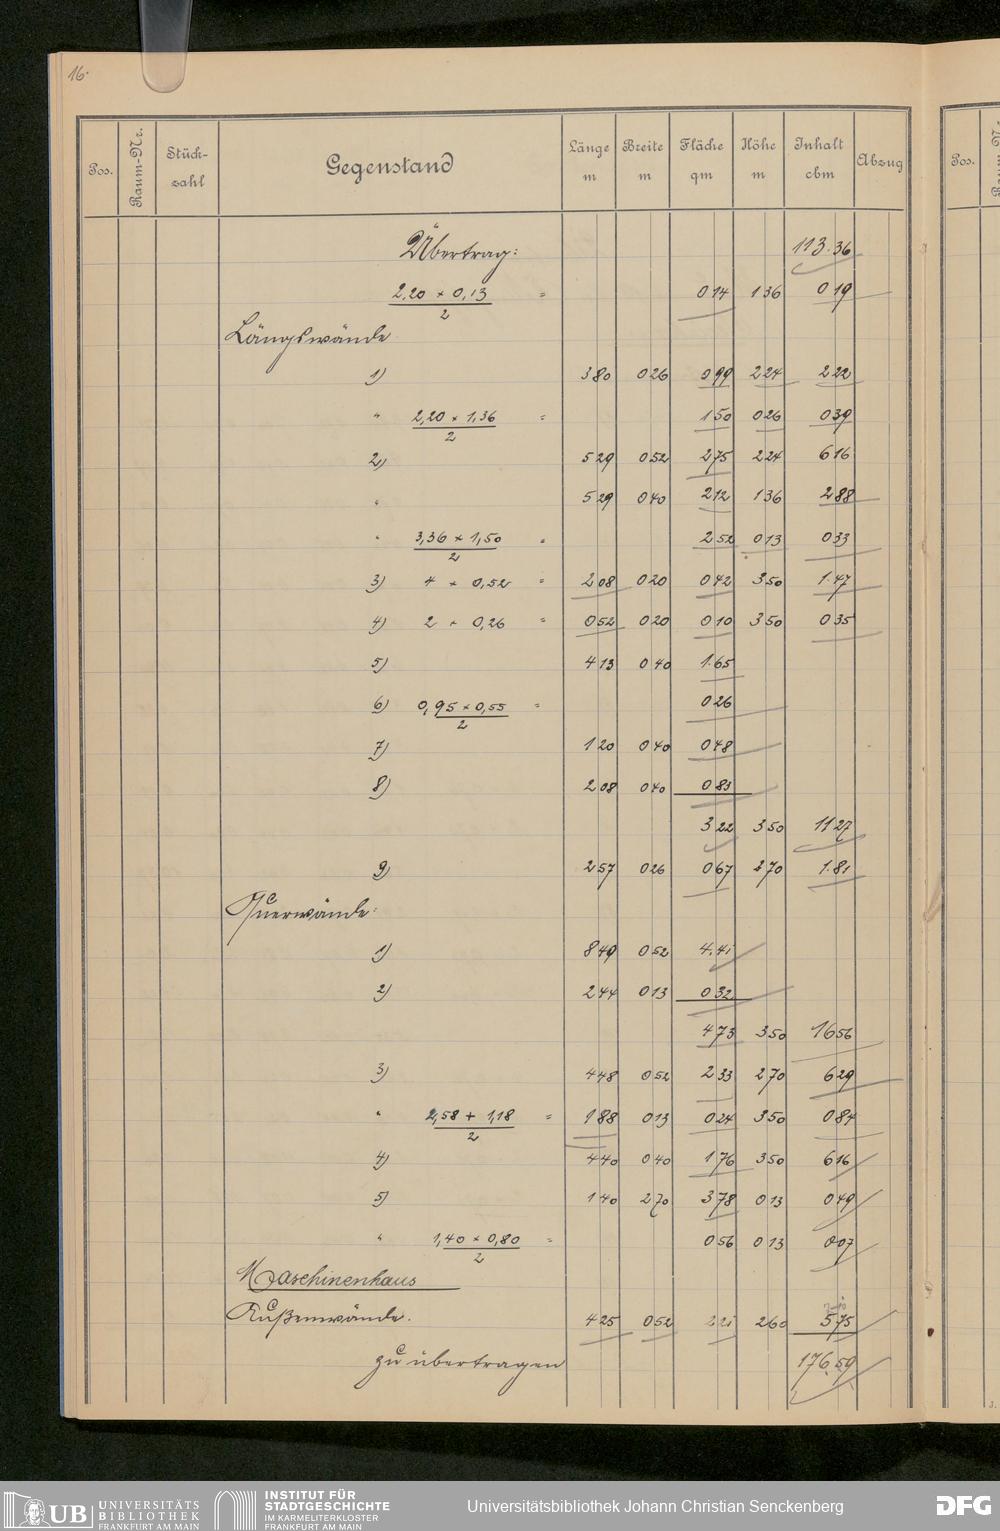 16.
Pos. Raum-Nr. Stück-zahl Gegenstand Länge m Breite m Fläche qm Höhe m Inhalt cbm Abzug Pos. Raum-Nr.
Übertrag: 113.36
2,20 × 0,13 / 2 = 0 14 1 36 0 19
Längswände
1) 3 80 0 26 0 99 2 24 2 22
" 2,20 × 1,36 / 2 = 1 50 0 26 0 39
2) 5 29 0 52 2 75 2 24 6 16
" 5 29 0 40 2 12 1 36 2 88
" 3,36 × 1,50 / 2 = 2 52 0 13 0 33
3) 4 × 0,52 = 2 08 0 20 0 42 3 50 1.47
4) 2 × 0,26 = 0 52 0 20 0 10 3 50 0 35
5) 4 13 0 40 1.65
6) 0,95 × 0,55 / 2 = 0 26
7) 1 20 0 40 0 48
8) 2 08 0 40 0 83
3 22 3 50 11 27
9) 2 57 0 26 0 67 2 70 1.81
Querwände:
1) 8 49 0 52 4.41
2) 2 44 0 13 0 32
4 73 3 50 16 56
3) 4 48 0 52 2 33 2 70 6 29
" 2,58 + 1,18 / 2 = 1 88 0 13 0 24 3 50 0 84
4) 4 40 0 40 1 76 3 50 6 16
5) 1 40 2 70 3 78 0 13 0 49
" 1,40 × 0,80 / 2 = 0 56 0 13 0 07
Maschinenhaus
Außenwände. 4 25 0 52 2 21 2 60 5 75
zu übertragen 176.59
UB UNIVERSITÄTS
BIBLIOTHEK
FRANKFURT AM MAIN
INSTITUT FÜR
STADTGESCHICHTE
IM KARMELITERKLOSTER
FRANKFURT AM MAIN
Universitätsbibliothek Johann Christian Senckenberg
DFG